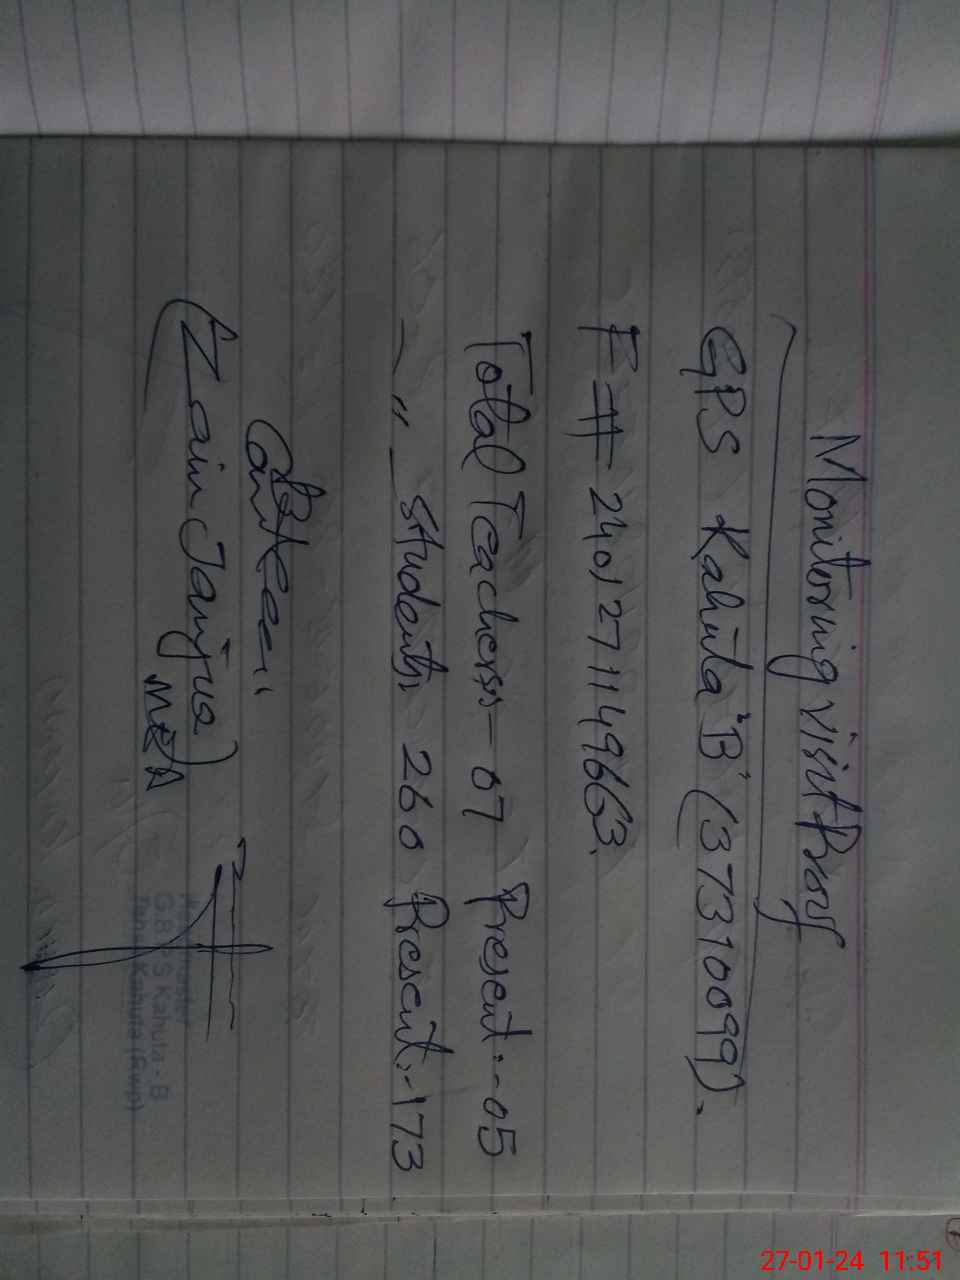 Monitoring visit Proof
GPS Kahuta "B" (37310099).
F # 24012711149663.
Total Teachers - 07 Present :- 05
- " - Students 260 Present :- 173
Zain Janjua)
MEA
G.B.P.S Kahuta - B
Teh. Kahuta (Rwp)
27-01-24 11:51